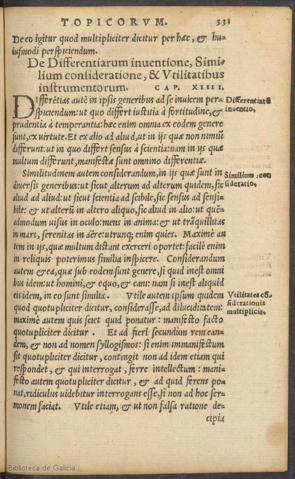 TOPICORVM. 331
De eo igitur quod multipliciter dicitur per hæc, & hu-
iusmodi perspiciendum.
De Differentiarum inuentione, Simi-
lium consideratione, & Vtilitatibus
instrumentorum. CAP. XIIII.
Differẽtias autẽ in ipsis generibus ad se inuicem per-
spiciendum: ut quo differt iustitia à fortitudine, &
prudentia à temperantia: hæc enim omnia ex eodem genere
sunt, ex uirtute. Et ex alio ad aliud, ut in ijs quæ non nimiũ
differunt: ut in quo differt sensus à scientia: nam in ijs quæ
multum differunt, manifestæ sunt omnino differentiæ.
Differentiarũ
inuentio.
Similitudinem autem considerandum, in ijs quæ sunt in
diuersis generibus: ut sicut alterum ad alterum quidem, sic
aliud ad aliud: ut sicut scientia ad scibile, sic sensus ad sensi-
bile: & ut alterũ in altero aliquo, sic aliud in alio: ut quẽ-
admodum uisus in oculo: mens in anima: & ut trãquillitas
in mari, serenitas in aëre: utrunq; enim quies. Maximè au
tem in ijs, quæ multum distant exerceri oportet: facilè enim
in reliquis poterimus similia inspicere. Considerandum
autem & ea, quæ sub eodem sunt genere, si quid inest omni
bus idem: ut homini, & equo, & cani: nam si inest aliquid
eis idem, in eo sunt similia. Vtile autem ipsum quidem
quod quotupliciter dicitur, considerasse, ad dilucidatem:
maximè autem quis sciet quid ponatur: manifesto facto
quotupliciter dicitur. Et ad fieri secundùm rem ean-
dem, & non ad nomen syllogismos: si enim immanifestum
sit quotupliciter dicitur, contingit non ad idem etiam qui
respondet, & qui interrogat, ferre intellectum: mani-
festo autem quotupliciter dicitur, & ad quid ferens po-
nat, ridiculus uidebitur interrogans esse, si non ad hoc ser-
monem faciat. Vtile etiam, & ut non falsa ratione de-
cipia
Similium con
sideratio.
Vtilitates cõ
siderationis
multiplicis.
Biblioteca de Galicia